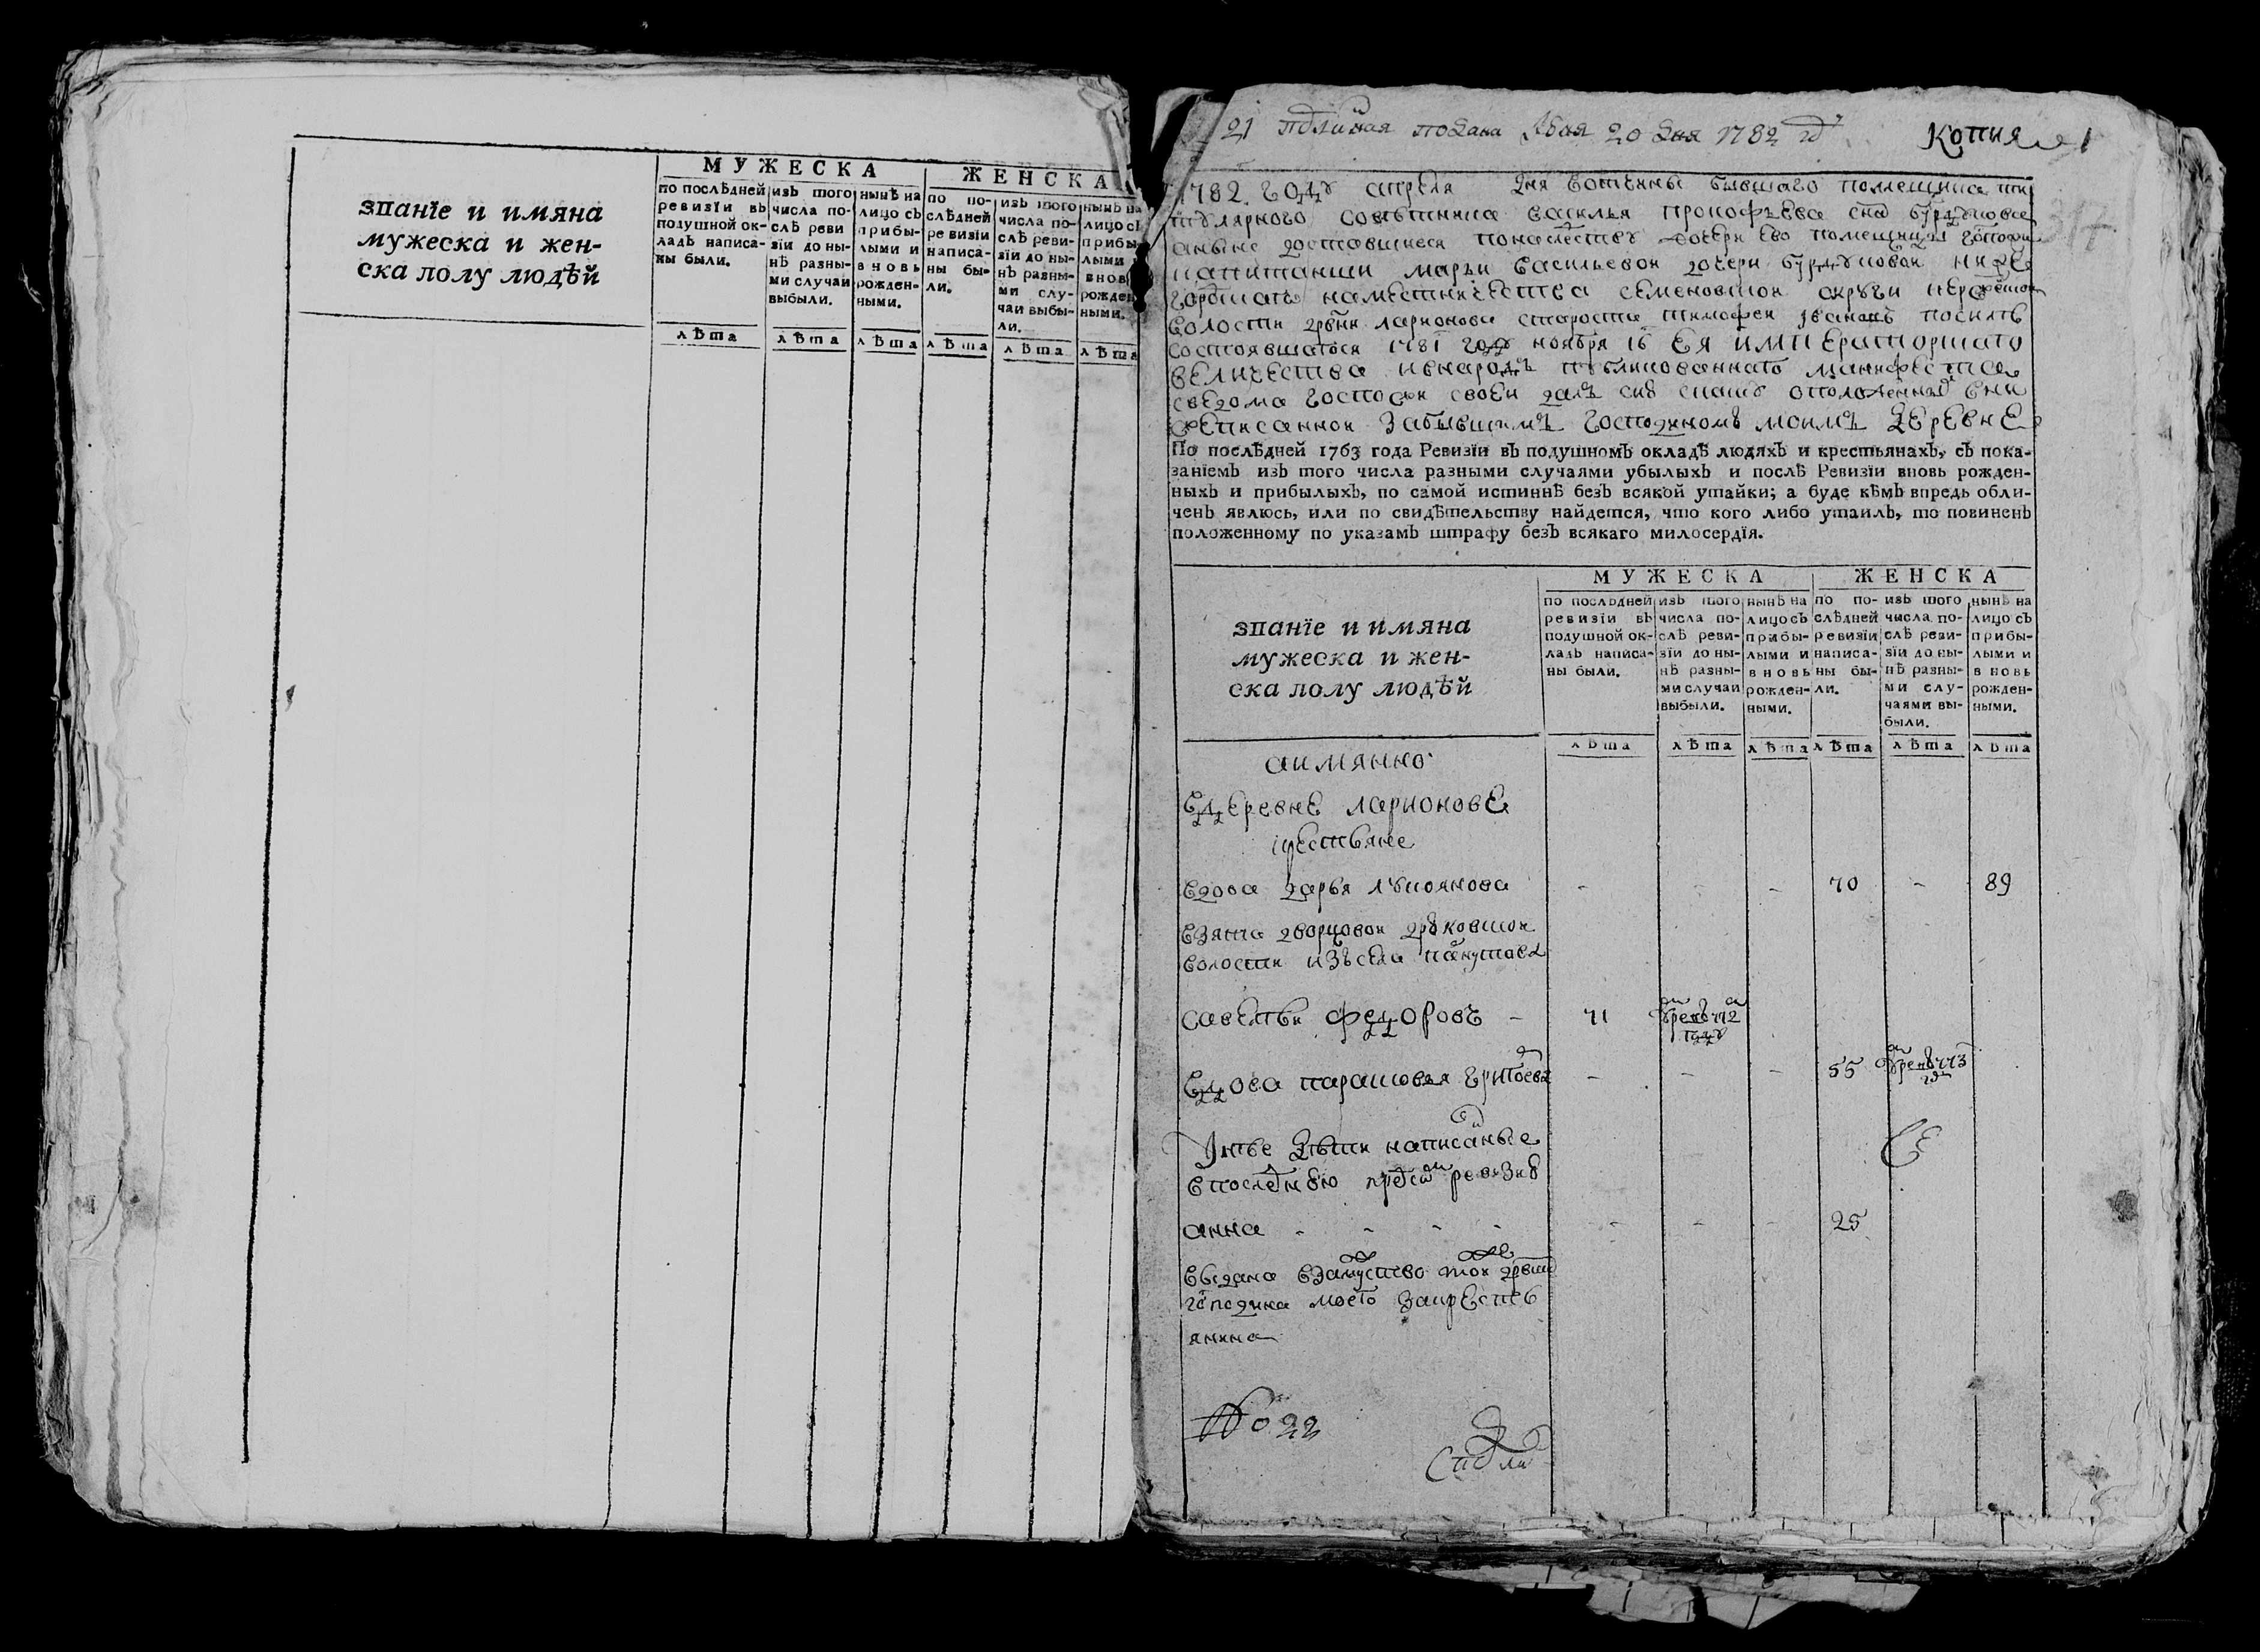 званіе и имяна
мужеска и жен-
ска полу людѣй
МУЖЕСКА
ЖЕНСКА
по послѣдней ревизіи въ подушной ок-ладъ написа-ны были.
изъ того числа по-слѣ реви зіи до ны-нѣ разны-ми случаи выбыли.
нынѣ на лицо съ прибы-лыми и вновь рожден-ными.
по по-слѣдней ревизіи написа-ны бы-ли.
изъ того числа по-слѣ реви-зіи до ны-нѣ разны-ми слу-чаи выбы-ли.
нынѣ на лицо съ прибы лыми вновь рожден ными.
лѣта лѣта лѣта лѣта лѣта лѣта
21 подлинная подана маия 20 дня 1782 году
Копия 1
317
1782 году апреля дня вотчины бывшаго помещика ти
тулярного советника василья прокофьева сна бурдукова
аныне доставшиеся понаследству дочери ево помещицы
капитанши марьи васильевой дочери бурдуковой ниже
городскаго наместничества семеновской округи
волости дрвни ларионова староста тимофей иванов посилѣ
состоявшагося 1781 году ноября 16 Ея ИМПЕраторскаго
вЕличества ивнародъ публикованнаго манифЕста
сведома госпожи своей далъ сию скаску ополож
писанной Забывшимъ господиномъ моимъ дЕрЕвнЕ
По послѣдней 1763 года Ревизіи въ подушномъ окладѣ людяхъ и крестьянахъ, съ пока-
заніемъ изъ того числа разными случаями убылыхъ и послѣ Ревизіи вновь рожден-
ныхъ и прибылыхъ, по самой истиннѣ безъ всякой утайки; а буде кѣмъ впредь обли-
ченъ явлюсь, или по свидѣтельству найдется, что кого либо утаилъ, то повиненъ
положенному по указамъ штрафу безъ всякаго милосердія.
МУЖЕСКА
ЖЕНСКА
званіе и имяна
мужеска и жен-
ска полу людѣй
по послѣдней ревизіи въ подушной ок-ладъ написа-ны были.
изъ того числа по-слѣ реви-зіи до ны-нѣ разны-ми случаи выбыли.
нынѣ на лицо съ прибы-лыми и вновь рожден-ными.
по по-слѣдней ревизіи написа-ны бы-ли.
изъ того числа по-слѣ реви-зіи до ны-нѣ разны-ми слу-чаями вы-были.
нынѣ на лицо съ прибы-лыми и вновь рожден-ными.
лѣта лѣта лѣта лѣта лѣта лѣта
аимянно
вдЕревнЕ ларионовЕ
крЕстьяне
вдова дарья лукоянова - - - 70 - 89
взята дворцовой дрюковской
волости изъ села
савелей федоровъ - 71 умре в 772 году
вдова парасковья григоева - - - 55 умре в 773 гд
Унѣе дѣти написаные
впоследнюю предсию ревизию
анна - - - - - - - 25
выдана взамуство той дрвни
гсподина моего закрЕстья
янина
№ 22